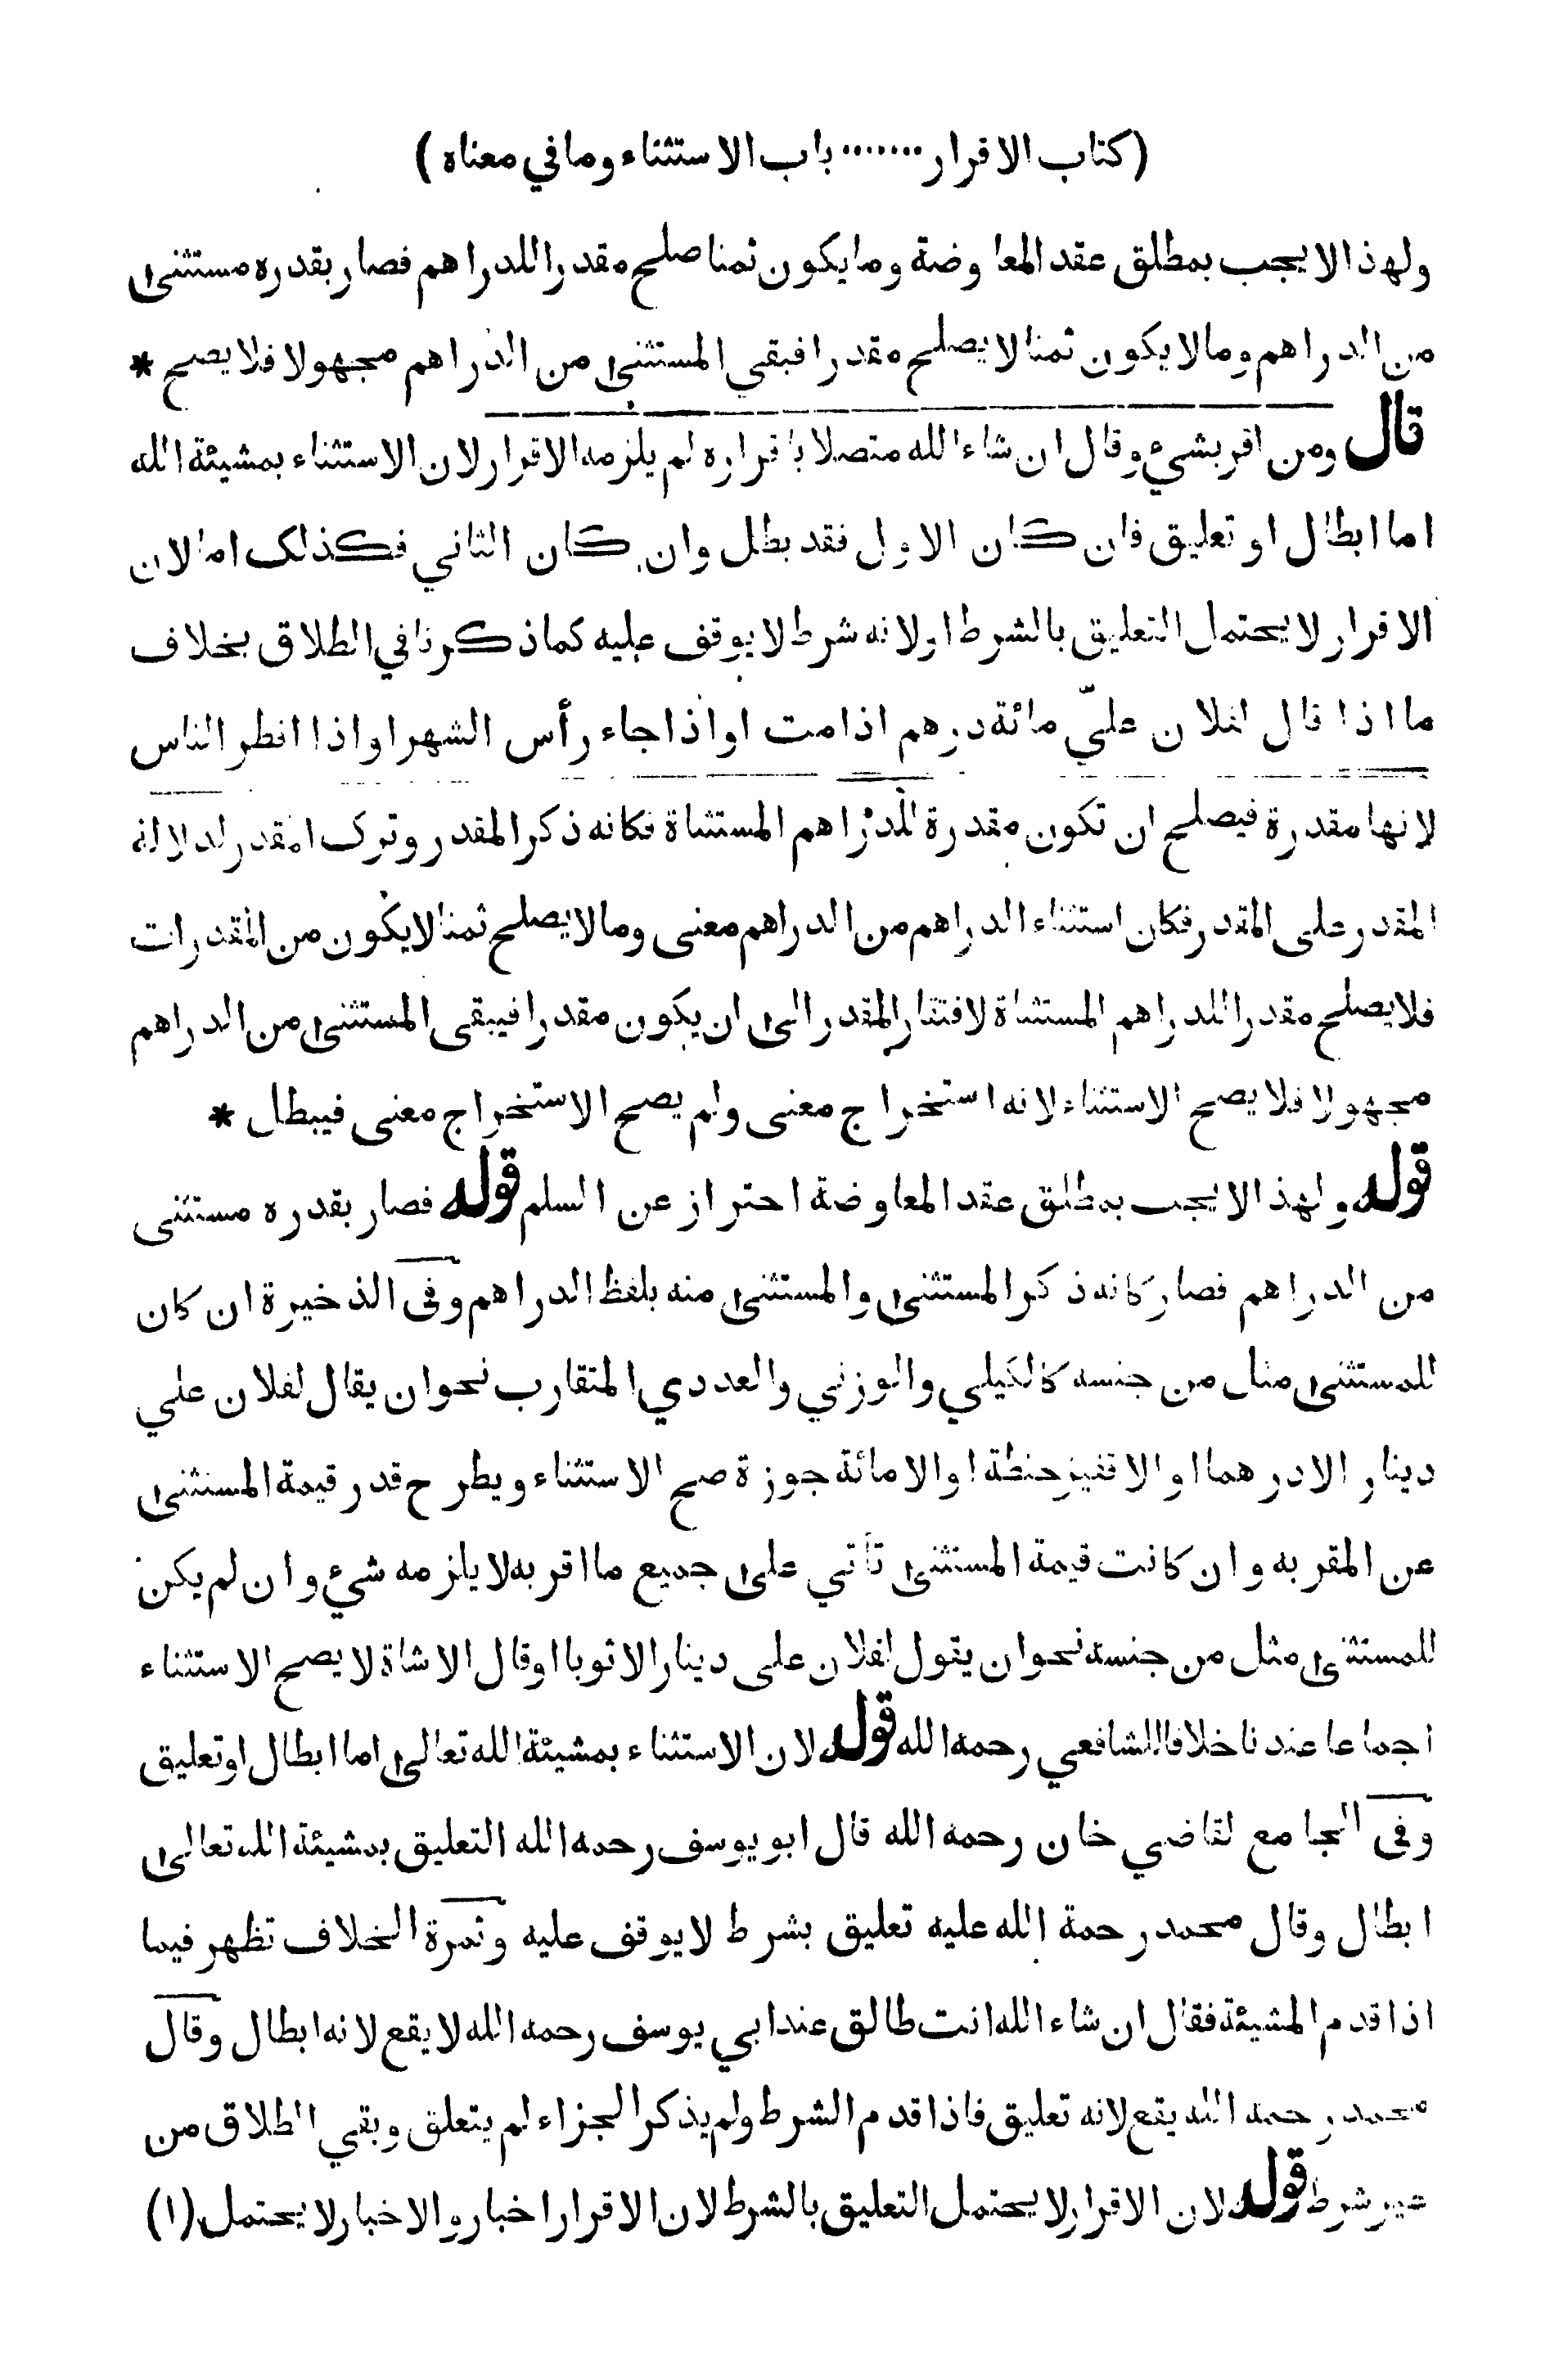 (كتاب الاقرار ........ باب الاستثناء وما في معناه)
ولهذا لا يجب بمطلق عقد المعاوضة وما يكون ثمنا صلح مقدرا للدراهم فصار بقدره مستثنى
من الدراهم وما لا يكون ثمنا لا يصلح مقدرا فبقي المستثنى من الدراهم مجهولا فلا يصح *
قال ومن اقر بشيء وقال ان شاء الله متصلا باقراره لم يلزمه الاقرار لان الاستثناء بمشيئة الله
اما ابطال او تعليق فان كان الاول فقد بطل وان كان الثاني فكذلك اما لان
الاقرار لا يحتمل التعليق بالشرط او لانه شرط لا يوقف عليه كما ذكرنا في الطلاق بخلاف
ما اذا قال لفلان عليّ مائة درهم اذا مت او اذا جاء رأس الشهر او اذا افطر الناس
لانها مقدرة فيصلح ان تكون مقدرة للدراهم المستثناة فكانه ذكر المقدر وترك المقدر لدلالة
المقدر على المقدر فكان استثناء الدراهم من الدراهم معنى وما لا يصلح ثمنا لا يكون من المقدرات
فلا يصلح مقدرا للدراهم المستثناة لافتقار المقدر الى ان يكون مقدرا فيبقى المستثنى من الدراهم
مجهولا فلا يصح الاستثناء لانه استخراج معنى ولم يصح الاستخراج معنى فيبطل *
قوله ولهذا لا يجب بمطلق عقد المعاوضة احتراز عن السلم قوله فصار بقدره مستثنى
من الدراهم فصار كانه ذكر المستثنى والمستثنى منه بلفظ الدراهم وفى الذخيرة ان كان
للمستثنى مثل من جنسه كالكيلي والوزني والعددي المتقارب نحو ان يقال لفلان علي
دينار الا درهما او الا قفيز حنطة او الا مائة جوزة صح الاستثناء ويطرح قدر قيمة المستثنى
عن المقر به وان كانت قيمة المستثنى تأتي على جميع ما اقر به لا يلزمه شيء وان لم يكن
للمستثنى مثل من جنسه نحو ان يقول لفلان على دينار الا ثوبا او قال الا شاة لا يصح الاستثناء
اجماعا عندنا خلافا للشافعي رحمه الله قوله لان الاستثناء بمشيئة الله تعالى اما ابطال او تعليق
وفى الجامع لقاضي خان رحمه الله قال ابو يوسف رحمه الله التعليق بمشيئة الله تعالى
ابطال وقال محمد رحمة الله عليه تعليق بشرط لا يوقف عليه وثمرة الخلاف تظهر فيما
اذا قدم المشيئة فقال ان شاء الله انت طالق عند ابي يوسف رحمه الله لا يقع لانه ابطال وقال
محمد رحمه الله يقع لانه تعليق فاذا قدم الشرط ولم يذكر الجزاء لم يتعلق وبقي الطلاق من
غير شرط قوله لان الاقرار لا يحتمل التعليق بالشرط لان الاقرار اخبار والاخبار لا يحتمل (١)